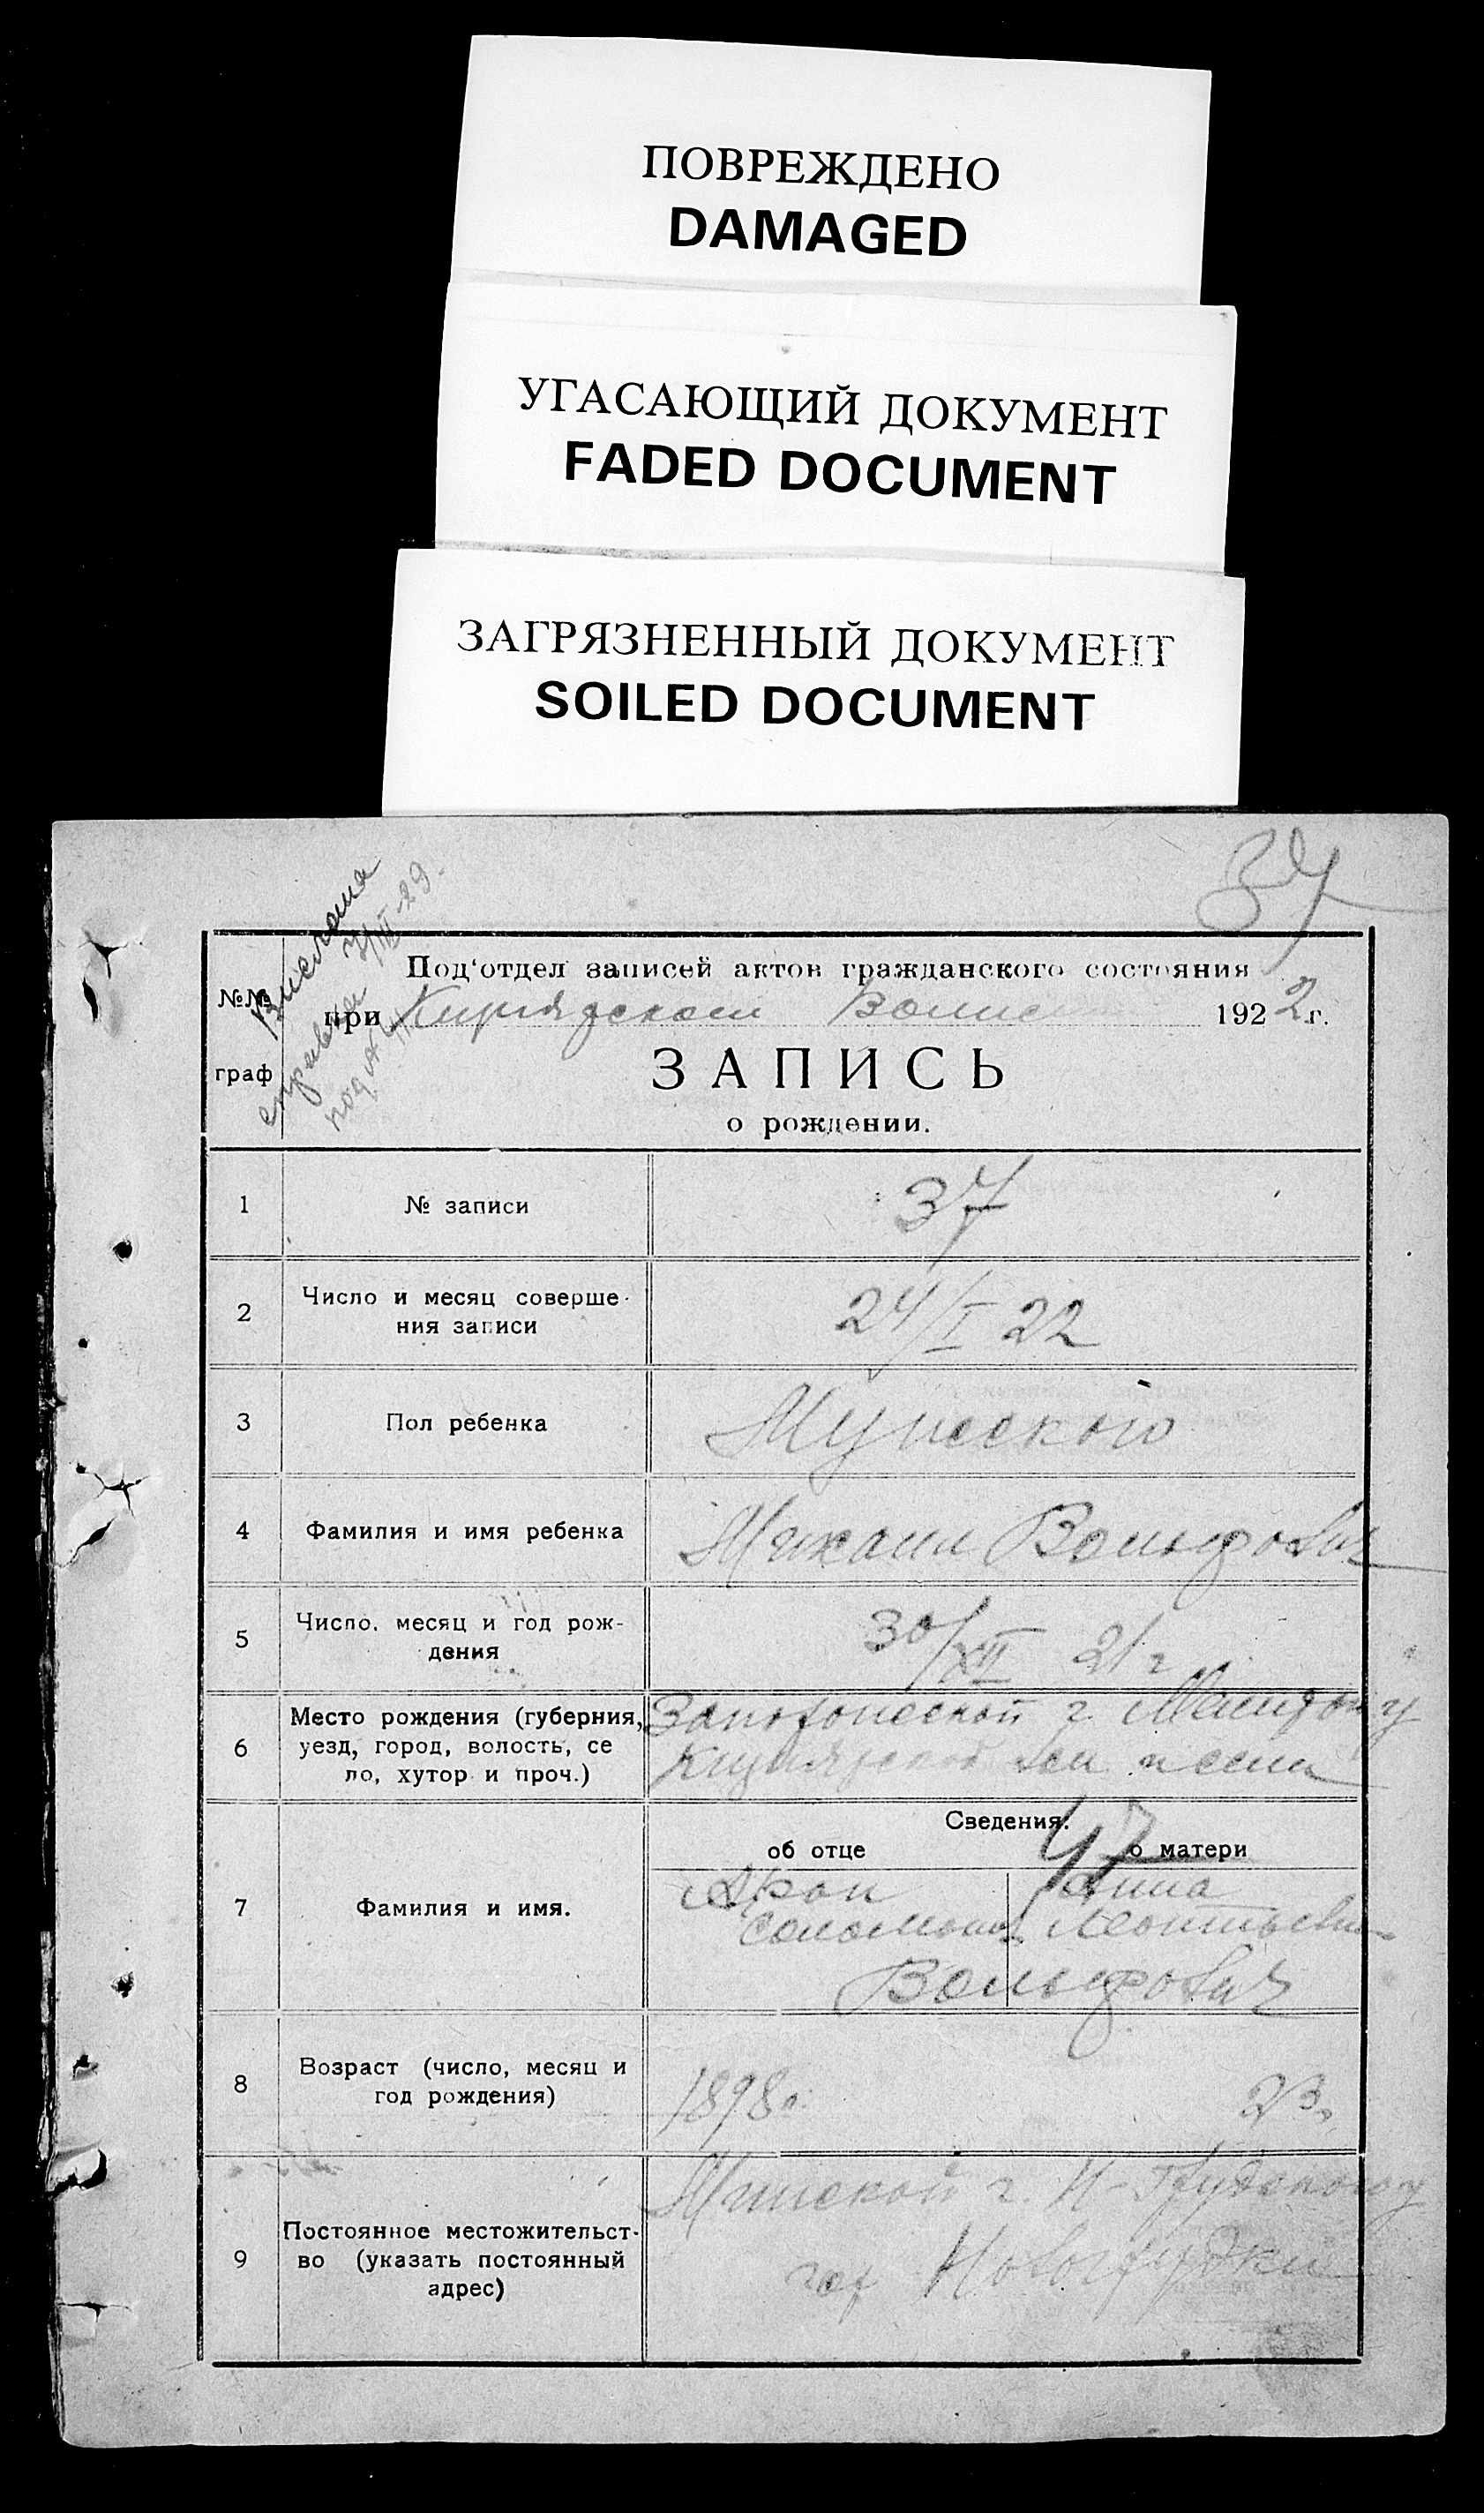 ПОВРЕЖДЕНО
DAMAGED
УГАСАЮЩИЙ ДОКУМЕНТ
FADED DOCUMENT
ЗАГРЯЗНЕННЫЙ ДОКУМЕНТ
SOILED DOCUMENT
37
Выслана
справка 7/III-29.
под №
№№
граф
Под'отдел записей актов гражданского состояния
при 1922 г.
ЗАПИСЬ
о рождении.
1 № записи 37
2 Число и месяц соверше-
ния записи 24/I 22
3 Пол ребенка Мужского
4 Фамилия и имя ребенка Михаил Вольфович
5 Число, месяц и год рож-
дения 30/XII 21 г
6 Место рождения (губерния, г.
уезд, город, волость, се
ло, хутор и проч.)
Сведения:
47
об отце о матери
7 Фамилия и имя. Арон Анна
Соломонов Леонтьевна
Вольфович
8 Возраст (число, месяц и
год рождения) 1898 г. 23
9 Постоянное местожительст-
во (указать постоянный
адрес)
Минской г. Н-Грудского у
гор Новогрудки